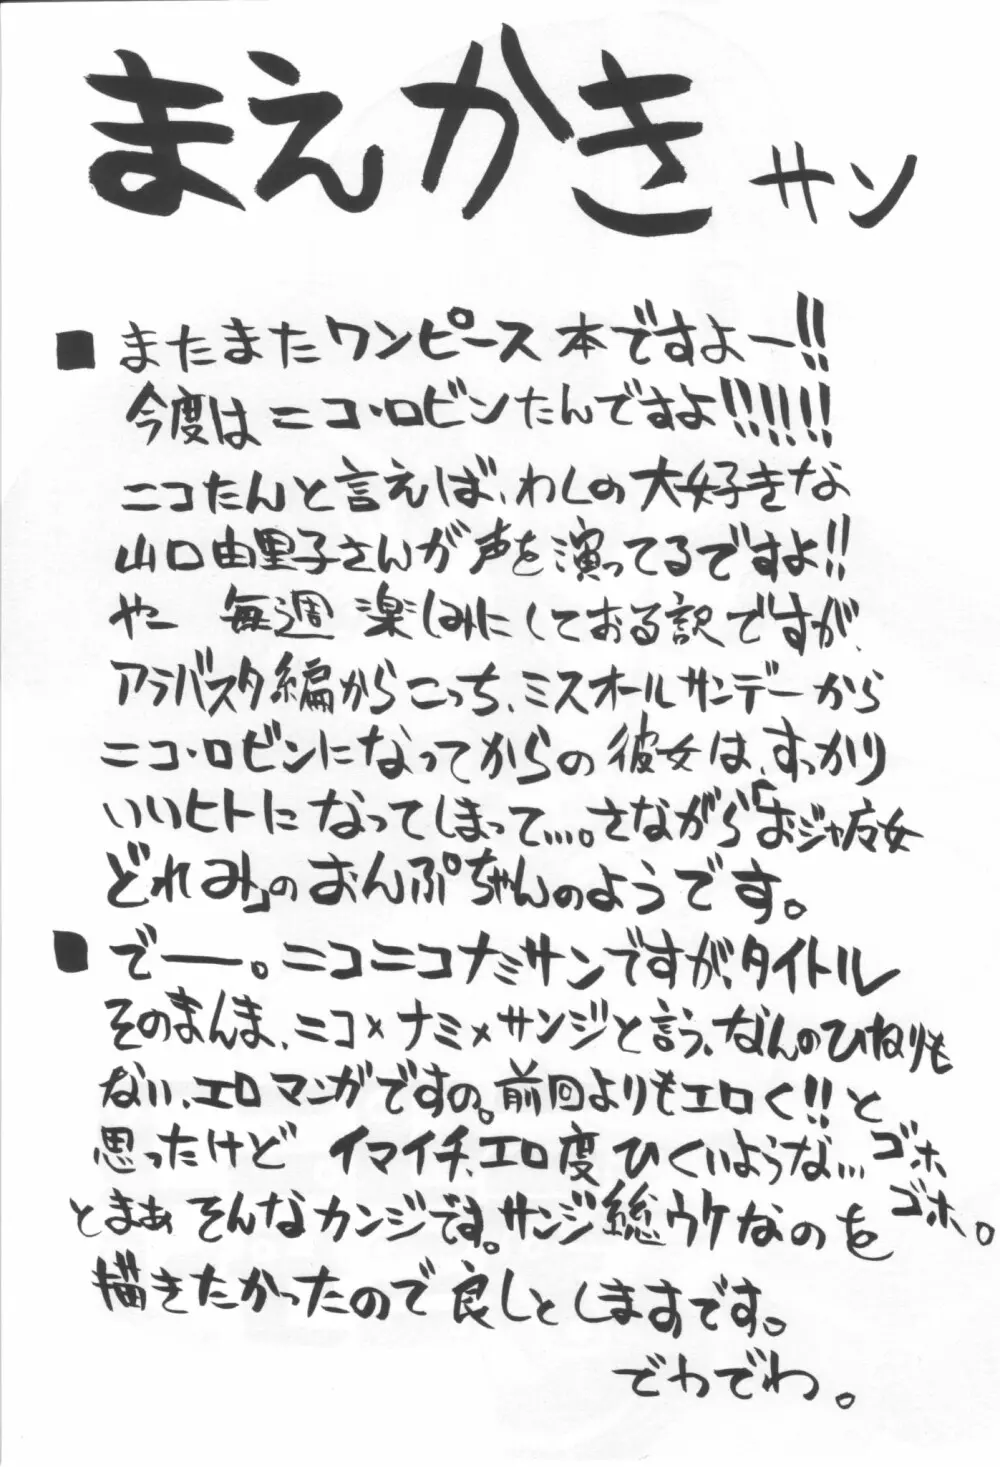 まえかきサン
■ またまたワンピース本ですよー!!
今度はニコ・ロビンたんですよ!!!!!!
ニコたんと言えば、わしの大好きな
山口由里子さんが声を演ってるですよ!!
やー 毎週楽しみにしておる訳ですが、
アラバスタ編からこっち、ミスオールサンデーから
ニコ・ロビンになってからの彼女は、すっかり
いいヒトになってしまって…。さながら「おジャ魔女
どれみ」のおんぷちゃんのようです。
■ でー。ニコニコナミサンですが、タイトル
そのまんま、ニコ×ナミ×サンジと言う、なんのひねりも
ない、エロマンガですの。前回よりもエロく!!と
思ったけど イマイチ、エロ度ひくいような… ゴホ
ゴホ。
とまぁそんなカンジです。サンジ総ウケなのを
描きたかったので良しとしますです。
でわでわ。